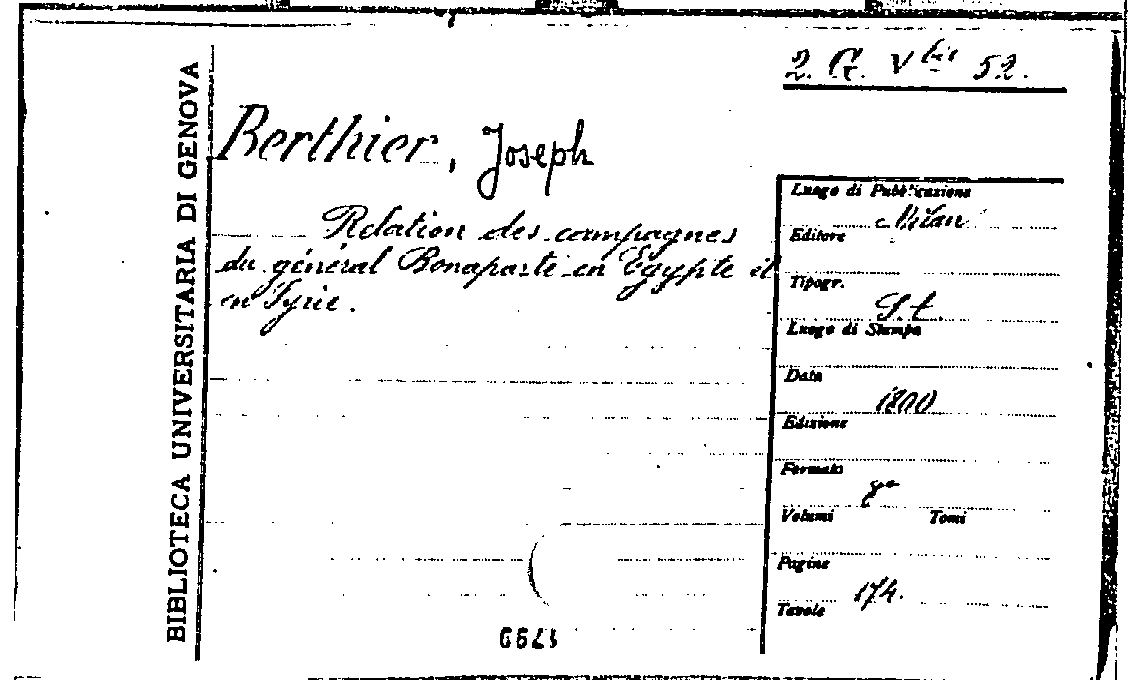 2. G. V bis 52.
BIBLIOTECA UNIVERSITARIA DI GENOVA
Berthier, Joseph
Relation des campagnes
du général Bonaparte en Egypte et
en Syrie.
Luogo di Pubblicazione
Milan
Editore
Tipogr.
S. t.
Luogo di Stampa
Data
1800
Edizione
Formato
8°
Volumi Tomi
Pagine
174.
Tavole